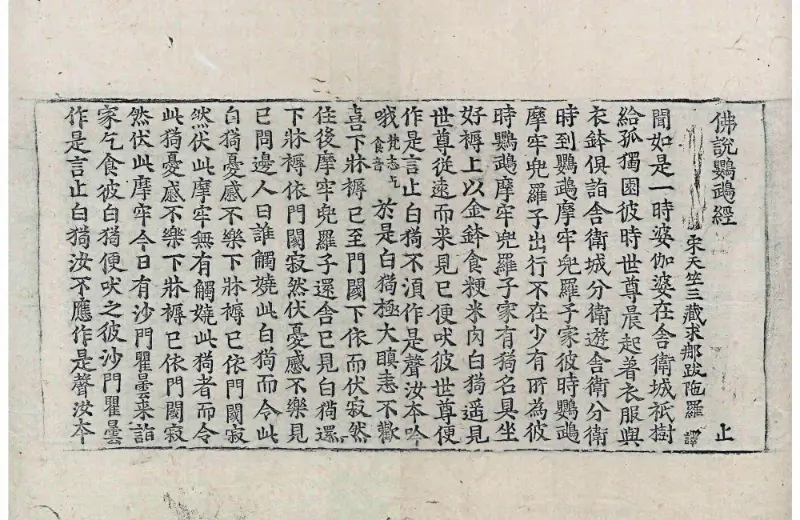 佛說鸚鵡經 止
宋天竺三藏求那跋陁羅 譯
聞如是一時婆伽婆在舍衛城祇樹
給孤獨園彼時世尊晨起著衣服與
衣鉢俱詣舍衛城分衛遊舍衛分衛
時到鸚鵡摩牢兜羅子家彼時鸚鵡
摩牢兜羅子出行不在少有所為彼
時鸚鵡摩牢兜羅子家有狗名具坐
好褥上以金鉢食粳米肉白狗遥見
世尊從遠而来見已便吠彼世尊便
作是言止白狗不湏作是聲汝本吟
哦梵志乞食音於是白狗極大瞋恚不歡
喜下牀褥已至門閫下依而伏寂然
住後摩牢兜羅子還舍已見白狗還
下牀褥依門閫寂然伏憂慼不樂見
已問邊人曰誰觸嬈此白狗而令此
白狗憂慼不樂下牀褥已依門閫寂
然伏此摩牢無有觸嬈此狗者而令
此狗憂慼不樂下牀褥已依門閫寂
然伏此摩牢今日有沙門瞿曇来詣
家乞食彼白狗便吠之彼沙門瞿曇
作是言止白狗汝不應作是聲汝本